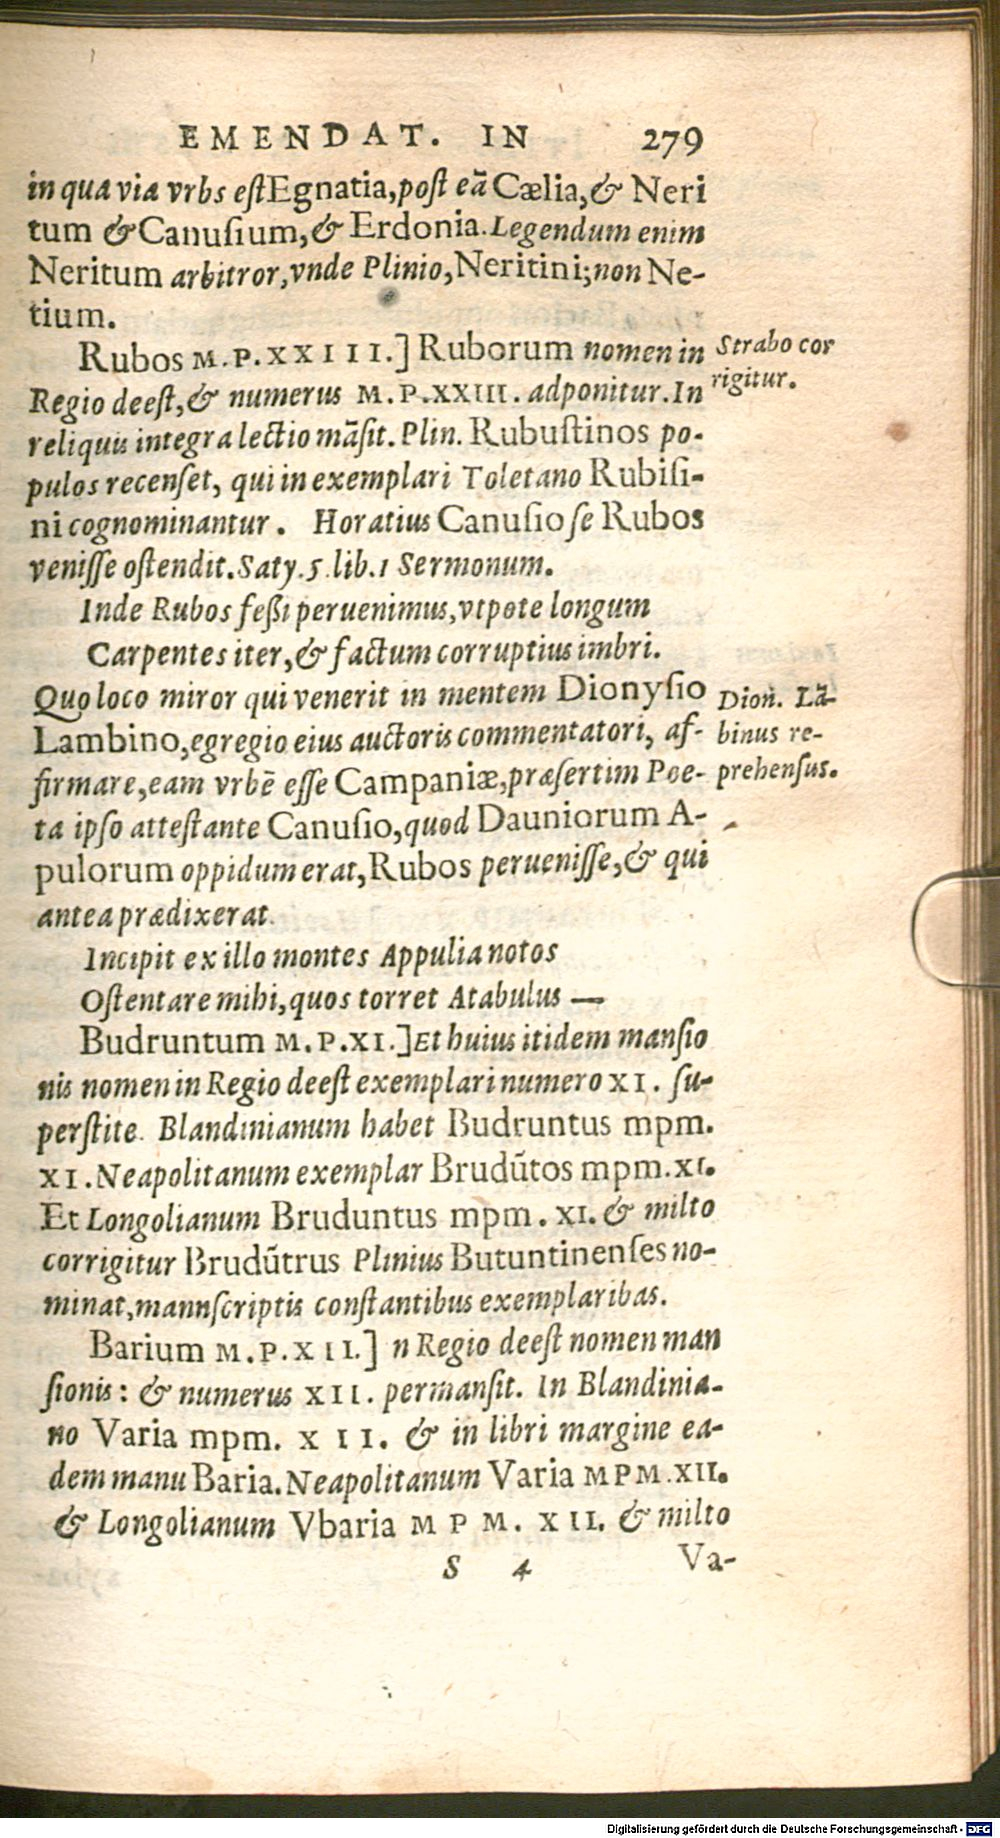 EMENDAT. IN 279
in qua via vrbs est Egnatia, post eā Cælia, & Neri
tum & Canusium, & Erdonia. Legendum enim
Neritum arbitror, vnde Plinio, Neritini; non Ne-
tium.
Rubos M.P.XXIII.] Ruborum nomen in
Strabo cor
rigitur.
Regio deest, & numerus M.P.XXIII. adponitur. In
reliquis integra lectio māsit. Plin. Rubustinos po-
pulos recenset, qui in exemplari Toletano Rubisi-
ni cognominantur. Horatius Canusio se Rubos
venisse ostendit. Saty. 5. lib. 1 Sermonum.
Inde Rubos fessi peruenimus, vtpote longum
Carpentes iter, & factum corruptius imbri.
Quo loco miror qui venerit in mentem Dionysio
Dion. Lā-
binus re-
prehensus.
Lambino, egregio eius auctoris commentatori, af-
firmare, eam vrbē esse Campaniæ, præsertim Poe-
ta ipso attestante Canusio, quod Dauniorum A-
pulorum oppidum erat, Rubos peruenisse, & qui
antea prædixerat.
Incipit ex illo montes Appulia notos
Ostentare mihi, quos torret Atabulus —
Budruntum M.P.XI.] Et huius itidem mansio
nis nomen in Regio deest exemplari numero XI. su-
perstite. Blandinianum habet Budruntus mpm.
XI. Neapolitanum exemplar Brudūtos mpm. XI.
Et Longolianum Bruduntus mpm. XI. & milto
corrigitur Brudūtrus Plinius Butuntinenses no-
minat, mannscriptis constantibus exemplaribas.
Barium M.P.XII.] n Regio deest nomen man
sionis: & numerus XII. permansit. In Blandinia-
no Varia mpm. XII. & in libri margine ea-
dem manu Baria. Neapolitanum Varia MPM.XII.
& Longolianum Vbaria MPM. XII. & milto
S 4 Va-
Digitalisierung gefördert durch die Deutsche Forschungsgemeinschaft - DFG